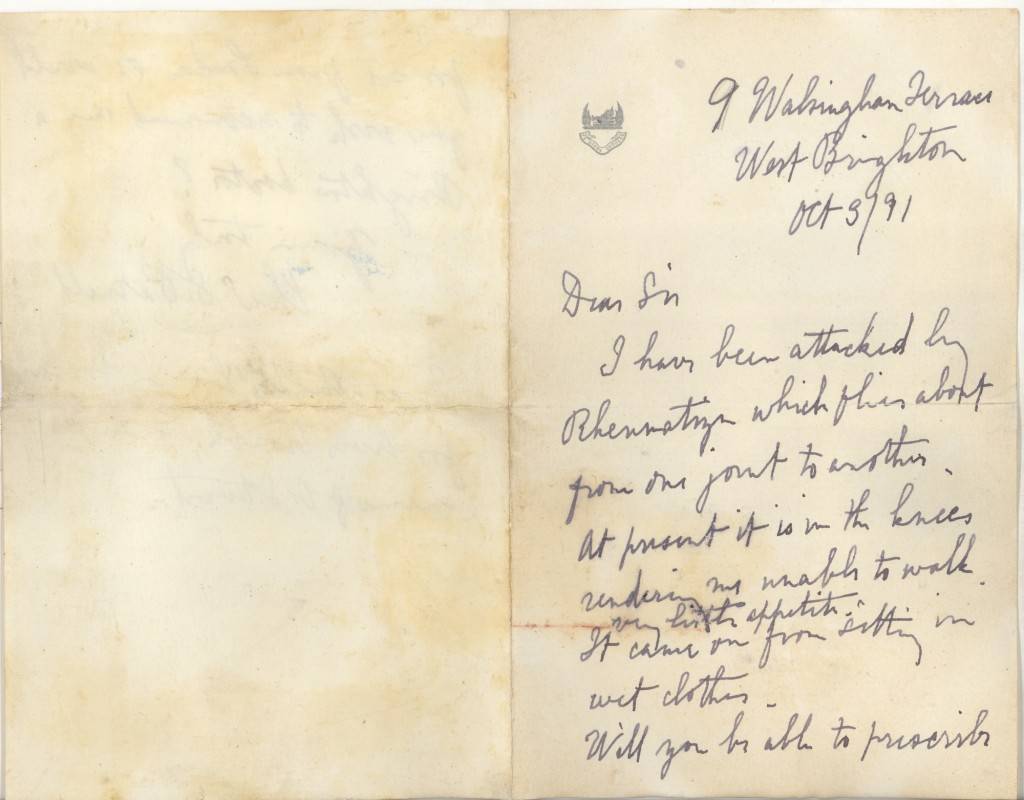 9 Walsingham Terrace
West Brighton
Oct 3/91
Dear Sir
I have been attacked by
Rheumatizm which flies about
from one joint to another.
At present it is in the knees
rendering me unable to walk.
very little appetite.
It came on from sitting in
wet clothes.
Will you be able to prescribe